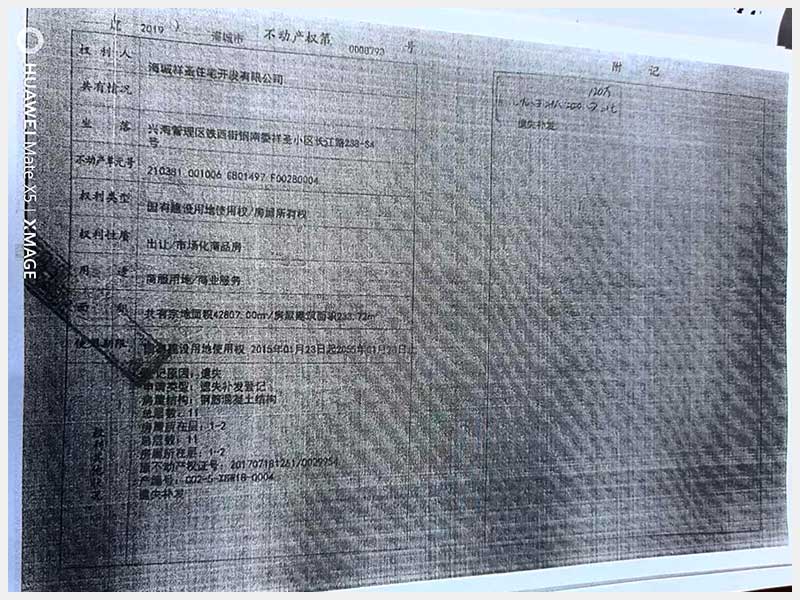 2019 ） 海城市 不动产权第 0000793 号
权利人 海城祥圣住宅开发有限公司
共有情况
坐落 兴海管理区铁西街钢南委祥圣小区长江路238-S4
号
不动产单元号 210381 001006 GB01497 F00280004
权利类型 国有建设用地使用权/房屋所有权
权利性质 出让/市场化商品房
用途 商服用地/商业服务
面积 共有宗地面积42807.00m²/房屋建筑面积233.72m²
使用期限 国有建设用地使用权 2015年01月23日起2055年01月20日止
登记原因：遗失
申请类型：遗失补发登记
房屋结构：钢筋混凝土结构
总层数：11
房屋所在层：1-2
总层数：11
房屋所在层：1-2
原不动产权证号：201707181261/0029954
遗失补发
附记
遗失补发
HUAWEI Mate X5 | XMAGE